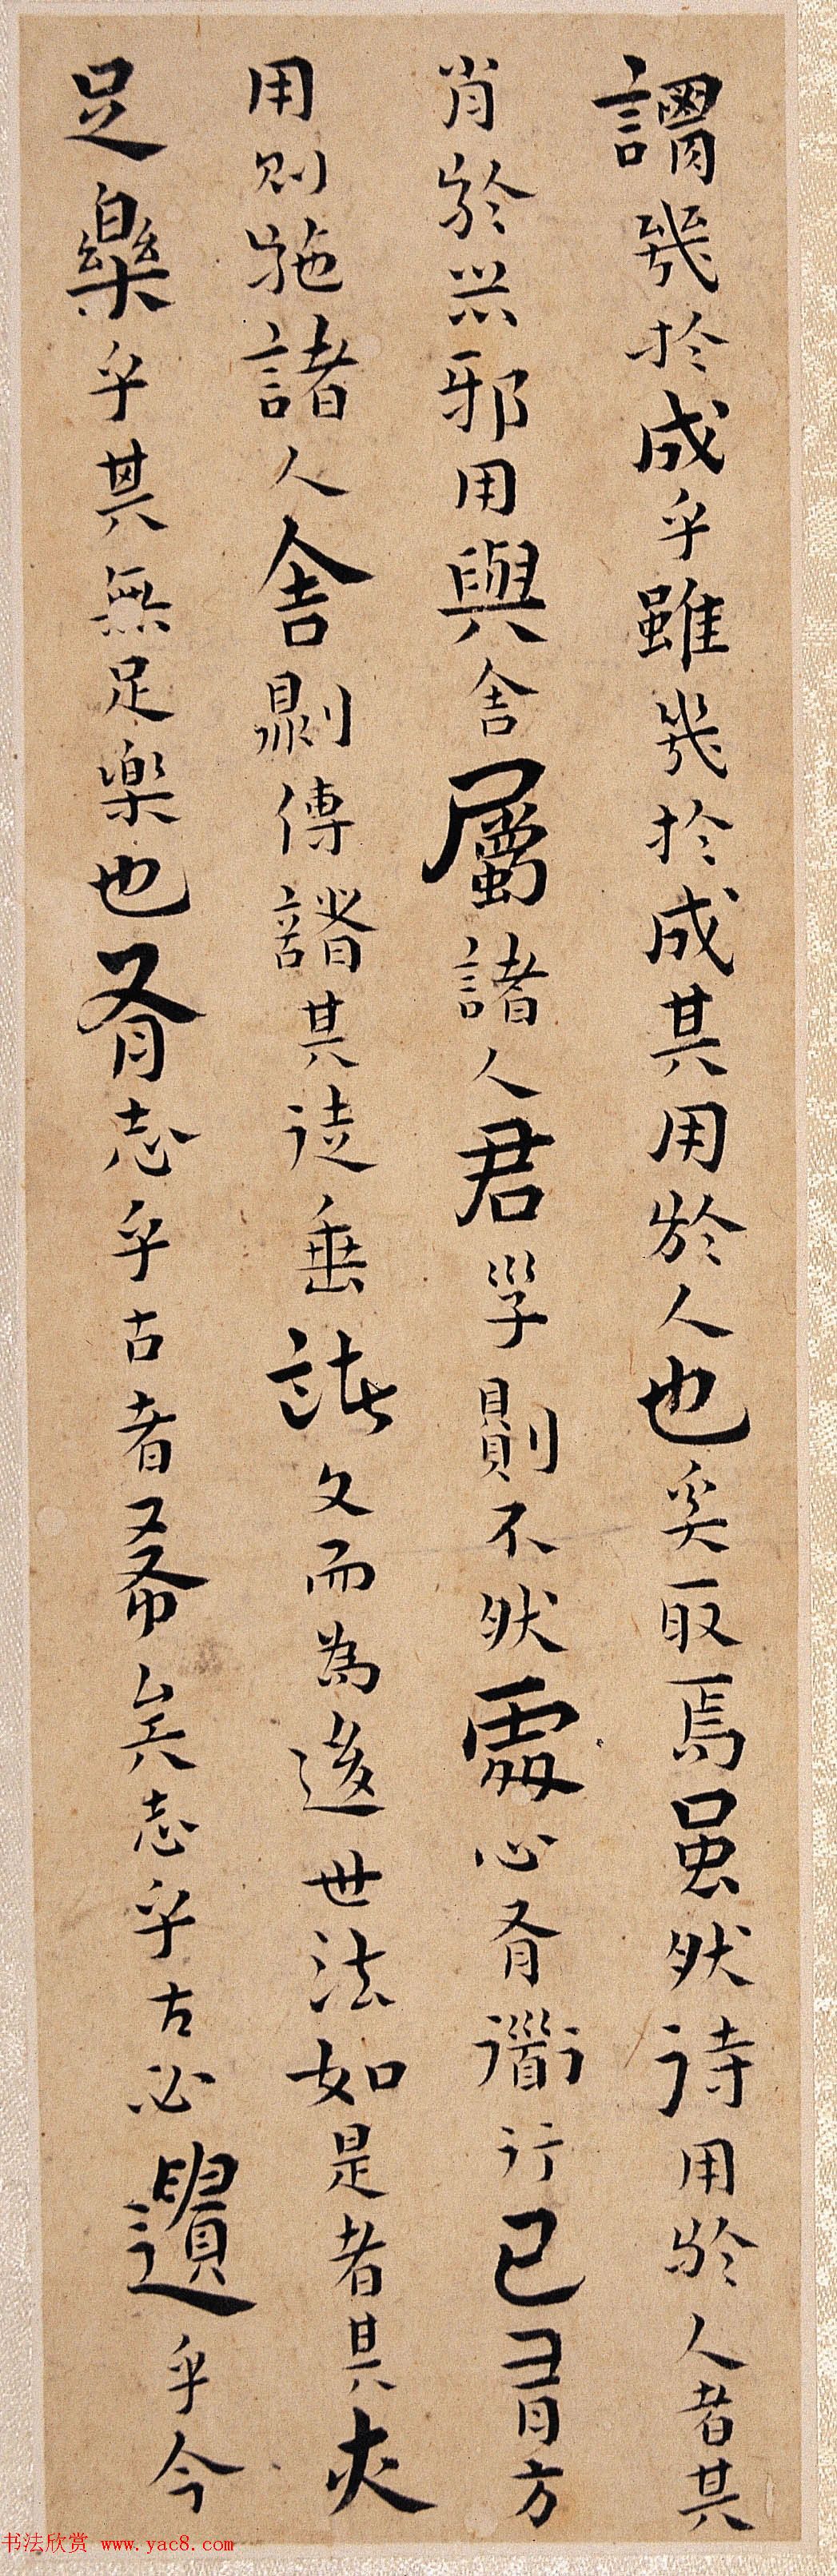 謂幾於成乎雖幾於成其用於人也奚取焉虽然待用於人者其
肖於器邪用與舍屬諸人君子則不然處心有道行已有方
用則施諸人舍則傳諸其徒垂諸文而為後世法如是者其亦
足樂乎其無足樂也有志乎古者希矣志乎古必遺乎今
书法欣赏 www.yac8.com